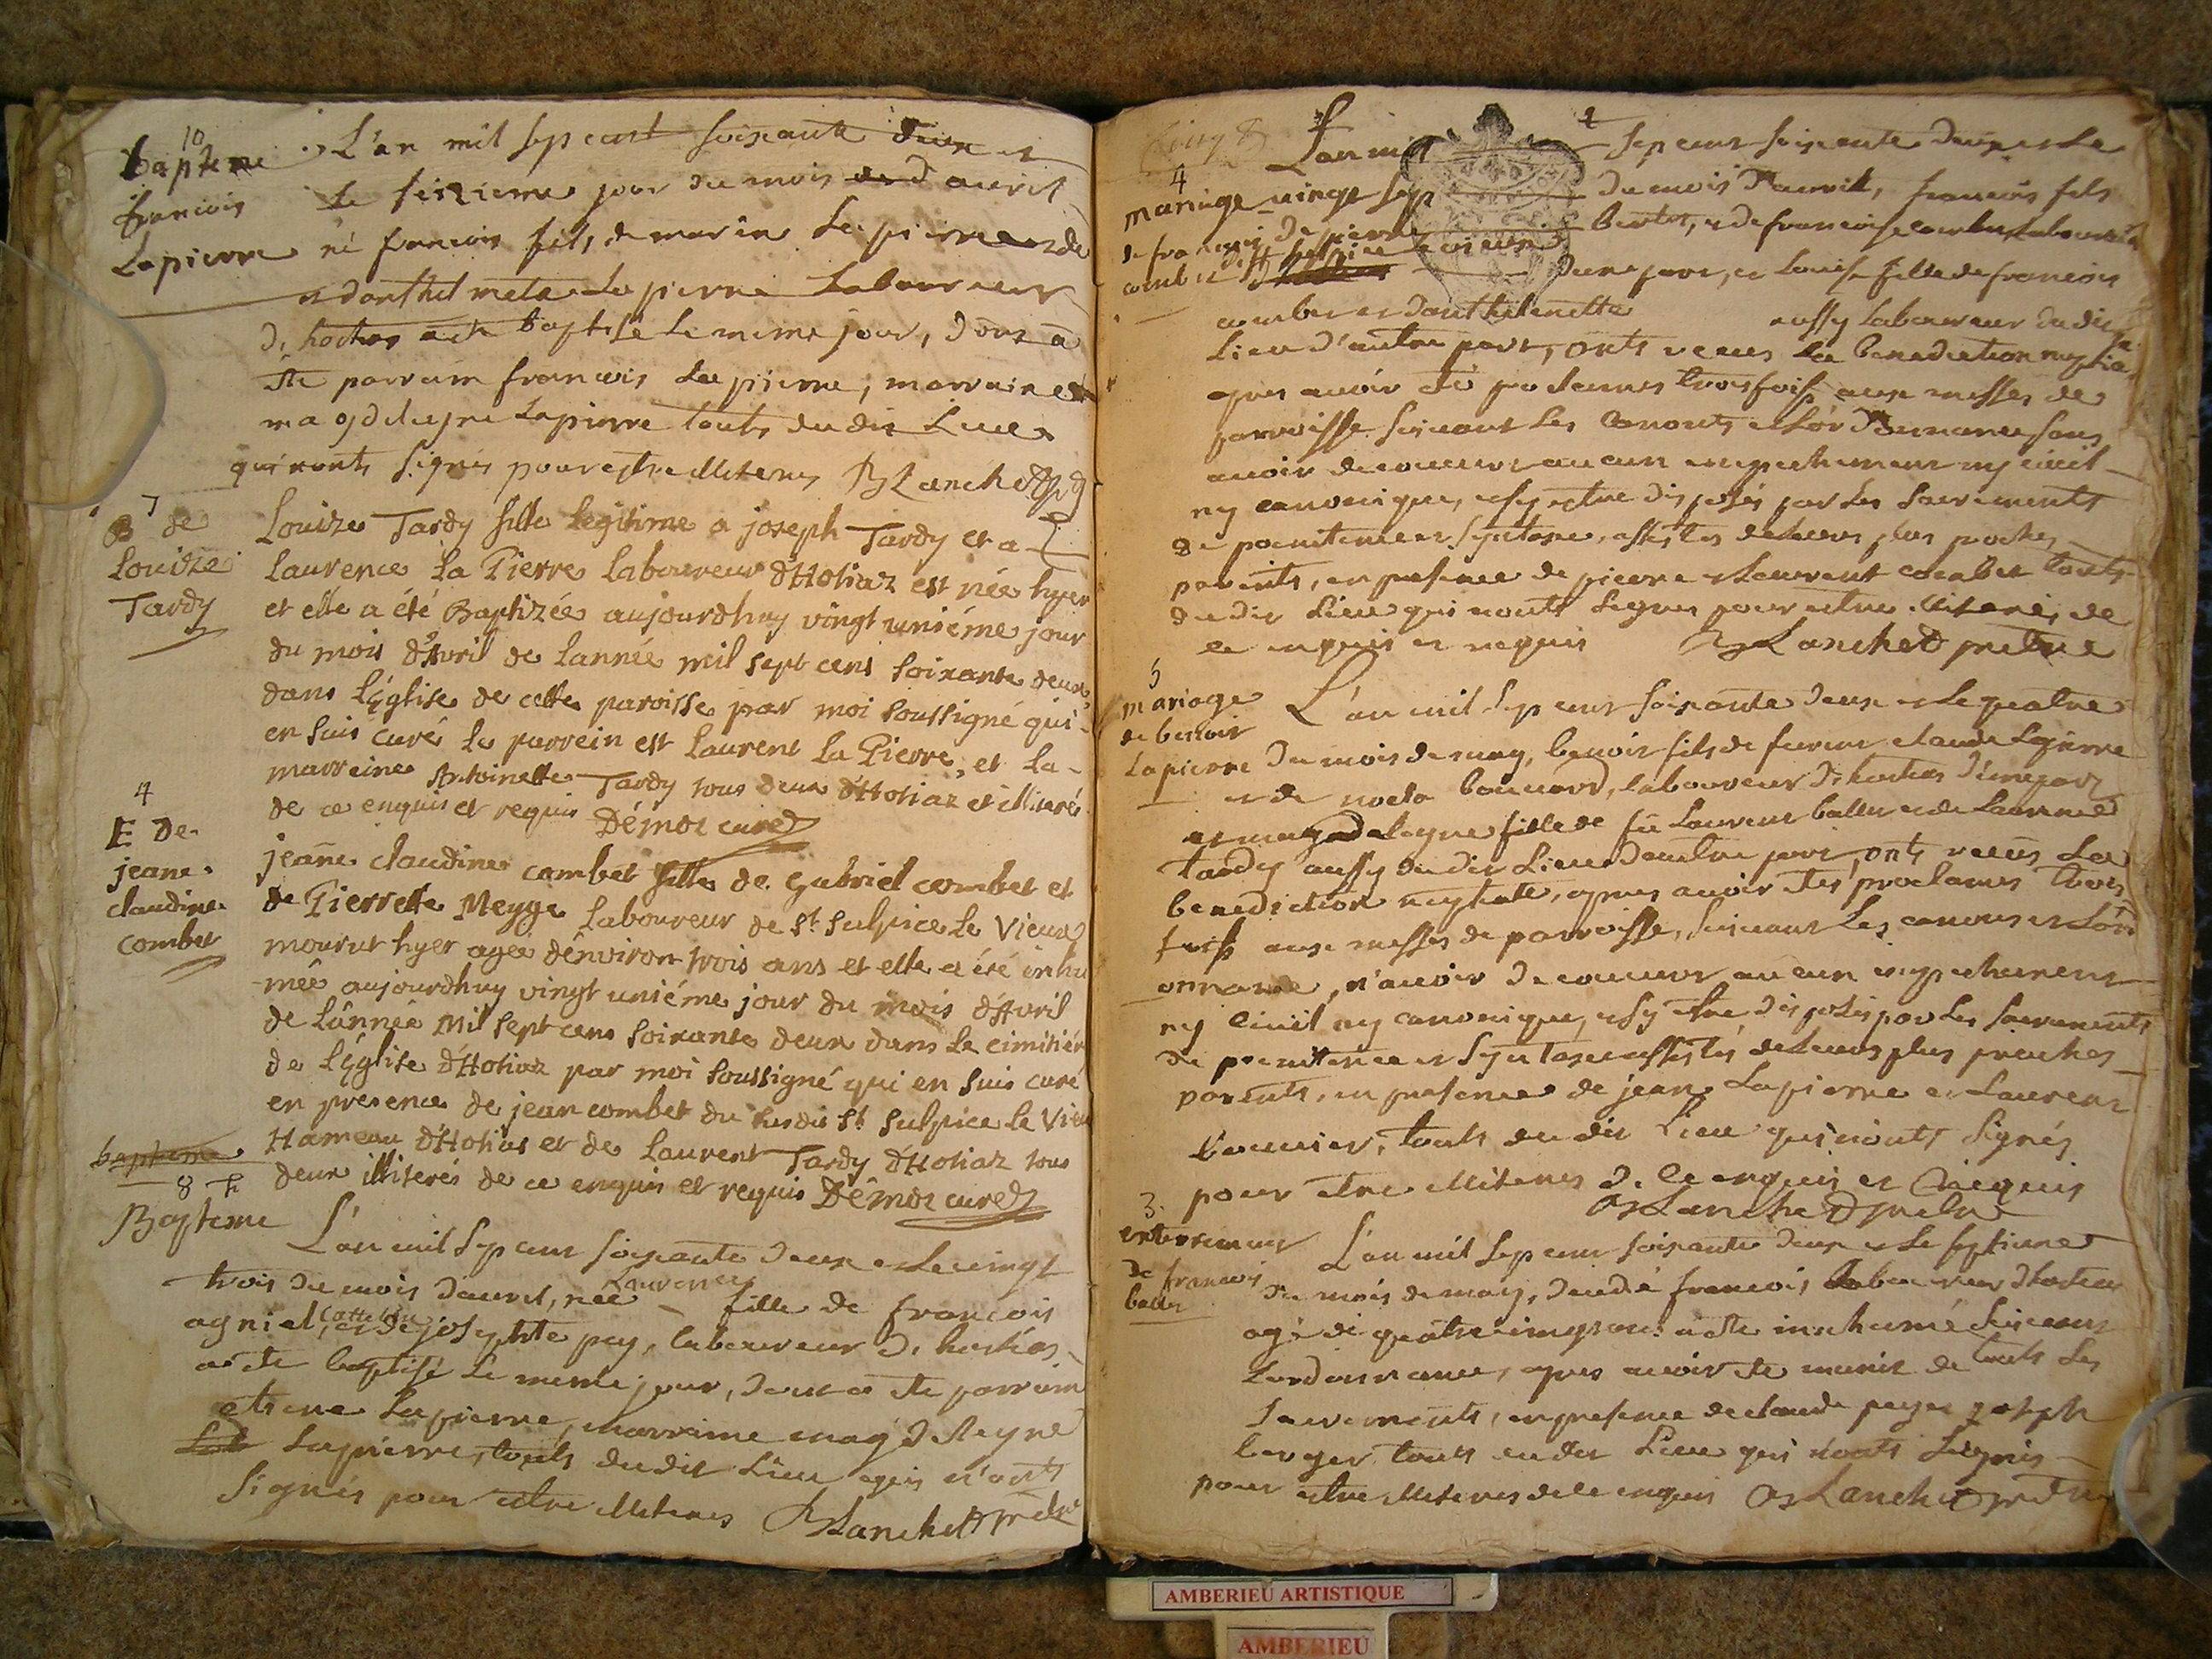 10
bapteme
francois
Lapierre
L'an mil sept cent soixante deux et
le seizieme jour du mois de d'avril
né francois fils de marin Lapierre et de
et d'anthelmeta Lapierre Laboureur
d'hostias a été baptisé le meme jour, dont a
été parrain francois Lapierre, marraine
magdeleyne Lapierre touts dudit Lieu
qui n'onts signés pour estre illiterés Blanchet
7
B de
Louize
Tardy
Louize Tardy fille legitime a joseph Tardy et a
Laurence La Pierre laboureur d'Hotiaz est née hyer
et elle a été Baptizée aujourdhuy vingt uniéme jour
du mois d'Avril de lannée mil sept cens soixante deux
dans lEglise de cette paroisse par moi soussigné qui
en suis curé le parrein est laurent la Pierre, et la
marreine Antoinette Tardy tous deux d'Hotiaz et illiterés
de ce enquis et requis Démoz curé
4
E De
jeane
claudine
combet
jeane claudine combet fille de gabriel combet et
de Pierrette Meyge laboureur de St Sulpice le Vieux
mourut hyer agée dénviron trois ans et elle a été inhu
mée aujourdhuy vingt uniéme jour du mois d'Avril
de lánnée Mil sept cens soixante deux dans le cimitiér
de lEglise d'Hotiaz par moi soussigné qui en suis curé
en presence de jean combet du susdit St Sulpice le Vieu
Hameau d'Hotias et de laurent Tardy d'Hotiaz tous
deux illiterés de ce enquis et requis Démoz curé
bapteme
8
Bapteme
L'an mil sept cent soixante deux et le vingt
trois du mois d'avril, née Laurence fille de francois
agniel, et de josephte pey, laboureur d'hostias
a été baptisé le meme jour, dont a été parrain
etiene Lapierre, marraine magdeleyne
Lapierre, touts dudit Lieu qui n'onts
signés pour estre illiterés Blanchet pretre
4
mariage
de francois
combet
L'an mil sept cent soixante deux et le
vingt sept du mois d'avril, francois fils
de pierre et de francoise combet laboureur
de St sulpice le vieux d'une part, et Louise fille de francois
combet et d'anthelmette aussy laboureur dudit
Lieu d'autre part, onts receus La benediction nuptia
apres avoir été proclamés trois foiss aux messes de
parroisse suivant Les Canonts et L'ordonnance sans
avoir decouvert aucun empechement ny civil
ny canonique, et sy estre disposés par Les Sacrements
de poenitence et Syntaxe, assistés de Leurs plus proches
parents, en presence de pierre et Laurent combet touts
dudit Lieu qui n'onts Signés pour estre illiterés de
ce enquis et requis Blanchet pretre
5
mariage
de benoit
Lapierre
L'an mil sept cent soixante deux et le quatre
du mois de may, benoit fils de claude Lapierre
et de laboureur d'hostias d'une part
et magdeleyne fille de fû Laurent ballet et de Laurence
Tardy aussy dudit Lieu d'autre part, onts receus La
benediction nuptiale, apres avoir etés proclamés trois
foiss aux messes de parroisse, suivant Les canons et L'ord
onnance, n'avoir decouvert aucun empechement
ny Civil ny canonique, et sy etre disposés par Les sacrements
de poenittence et Syntaxe assistés de Leurs plus proches
parents, en presence de jean Lapierre et Laurent
touts dudit Lieu qui n'onts signés
pour etre illiterés de ce enquis et requis
Blanchet pretre
3
enterrement
de francois
ballet
L'an mil sept cent soixante deux et le septieme
du mois de may, francois laboureur d'hostias
agé de quatre vingt a été inhumé suivant
L'ordonnance, apres avoir été munis de touts les
sacrements, en presence de claude joseph
touts dudit Lieu qui n'onts Signés
pour etre illiterés de ce enquis Blanchet pretre
AMBERIEU ARTISTIQUE
AMBERIEU